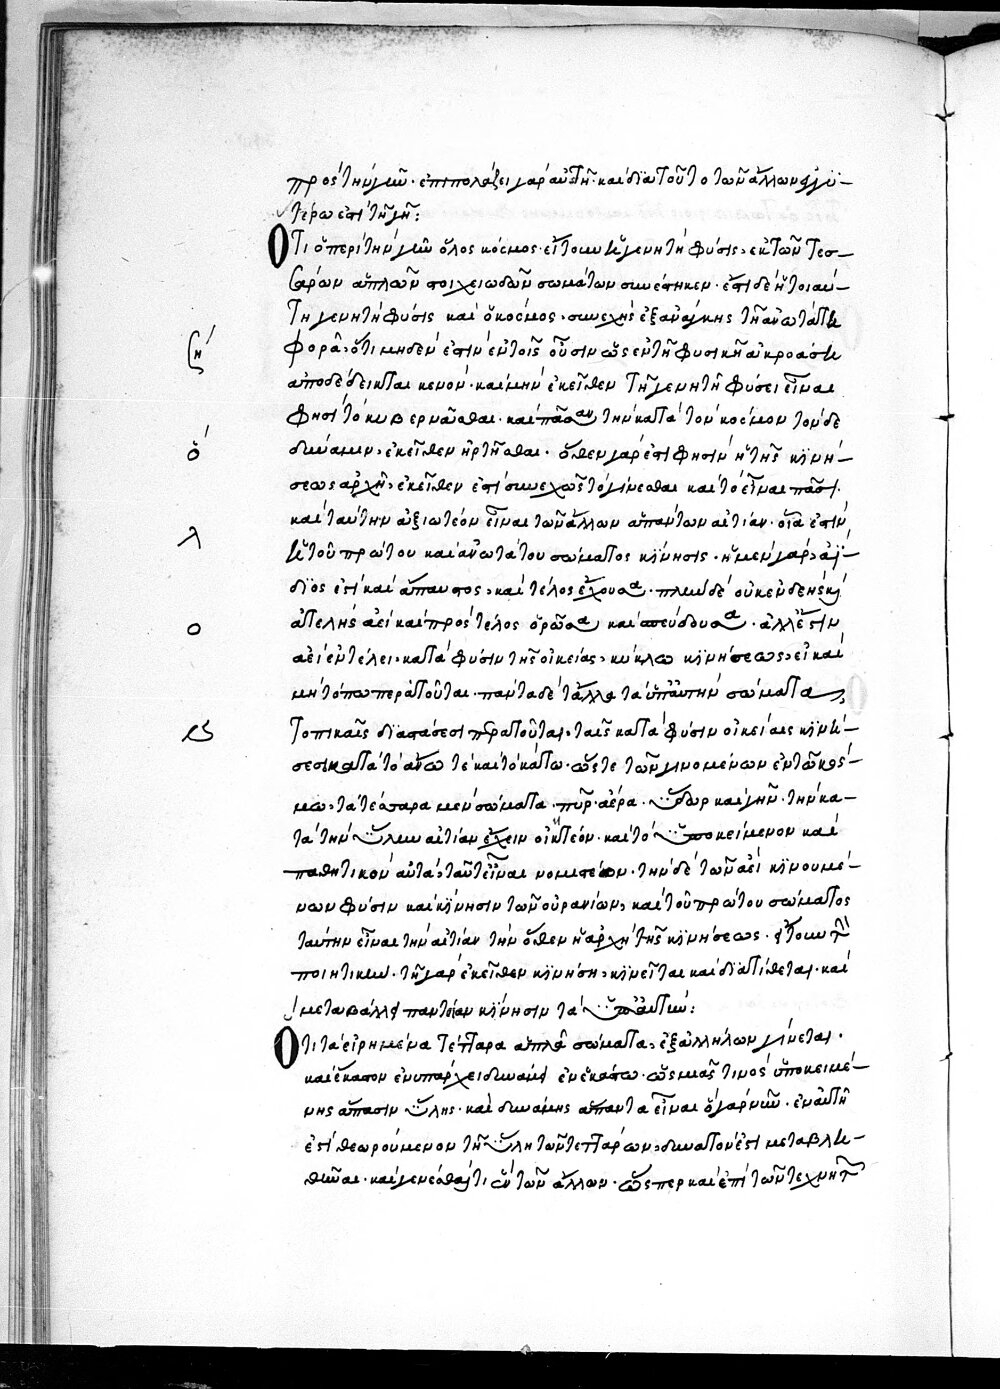 πρὸς τὴν γῆν. ἐπιπολάζει γὰρ αὐτῇ. καὶ διὰ τοῦτο τῶν ἄλλων ἐγγϋ-
τέρω ἐστὶ τῇ γῇ:
Ὅτι ὁ περὶ τὴν γῆν ὅλος κόσμος. εἴτουν ἡ γεννητὴ φύσις, ἐκ τῶν τεσ-
σάρων ἁπλῶν στοιχειωδῶν σωμάτων συνέστηκεν. ἔστι δὲ ἡ τοιαύ-
τη γεννητὴ φύσις καὶ ὁ κόσμος, συνεχὴς ἐξ ἀνάγκης τῇ ἀνωτάτη
φορᾷ, ὅτι μηδέν ἐστιν ἐν τοῖς οὖσιν ὡς ἐν τῇ φυσικῇ ἀκροάσει
ἀποδέδεικται κενόν. καὶ μὴν ἐκεῖθεν τῇ γεννητῇ φύσει εἶναι
φησὶ τὸ κυβερνᾶσθαι. καὶ πᾶσαν τὴν κατὰ τὸν κόσμον τόνδε
δύναμιν, ἐκεῖθεν ἠρτῆσθαι. ὅθεν γὰρ ἐστί φησιν ἡ τῆς κϊνή-
σεως ἀρχὴ, ἐκεῖθεν ἐστὶ συνεχῶς τὸ γίνεσθαι καὶ τὸ εἶναι πᾶσι.
καὶ ταύτην ἀξιωτέον εἶναι τῶν ἄλλων ἁπάντων αἰτίαν. οἵα ἐστὶν
ἡ τοῦ πρώτου καὶ ἀνωτάτου σώματος κίνησις. ἡ μὲν γὰρ, ἀΐ-
διος ἐστὶ καὶ ἄπαυστος, καὶ τέλος ἔχουσα.
ἀτελὴς ἀεὶ καὶ πρὸς τέλος ὁρῶσα καὶ σπεύδουσα. ἀλλ' ἔστιν
ἀεὶ ἐν τέλει, κατὰ φύσιν τῆς οἰκείας, κύκλω κϊνήσεως, εἰ καὶ
μὴ τόπω περατοῦται. πάντα δὲ τἄλλα τὰ ὑπ' αὐτὴν σώματα,
τοπικαῖς διαστάσεσι περατοῦται, ταῖς κατὰ φύσιν οἰκείαις κϊνή-
σεσι κατὰ τὸ ἄνω τὲ καὶ τὸ κάτω. ὥστε τῶν γινομένων ἐν τῶ κόσ-
μω, τὰ τέσσαρα μὲν σώματα. πῦρ. ἀέρα. ὕδωρ καὶ γῆν. τὴν κα-
τὰ τὴν ὕλην αἰτίαν ἔχειν οἰητέον. καὶ τὸ ὑποκείμενον καὶ
παθητικὸν αὐτὰ, ταῦτ' εἶναι νομιστέον. τὴν δὲ τῶν ἀεὶ κϊνουμέ-
νων φύσιν καὶ κίνησιν τῶν οὐρανίων, καὶ τοῦ πρώτου σώματος
ταύτην εἶναι τὴν αἰτίαν τὴν ὅθεν ἡ ἀρχὴ τῆς κϊνήσεως. εἴτουν τὴν
ποιητικήν. τῇ γὰρ ἐκεῖθεν κϊνήσει, κϊνεῖται καὶ διατίθεται. καὶ
μεταβάλλει παντοίαν κίνησιν τὰ ὑπ' αὐτήν:
Ὅτι τὰ εἰρημένα τέτταρα ἁπλᾶ σώματα, ἐξ ἀλλήλων γίνεται.
καὶ ἕκαστον ἐνυπάρχει δυνάμει ἐν ἑκάστω. ὡς μιᾶς τινὸς ὑποκειμέ-
νης ἅπασιν ὕλης. καὶ δυνάμης ἅπαντα εἶναι ὃ γὰρ νῦν. ἐν αὐτῇ
ἐστὶ θεωρούμενον τῇ ὕλῃ τῶν τεττάρων, δυνατὸν ἐστὶ μεταβλη-
θῆναι. καὶ γενέσθαι τι ἓν τῶν ἄλλων. ὥσπερ καὶ ἐπὶ τῶν τεχνητῶν
ση
ὅ
λ
ο